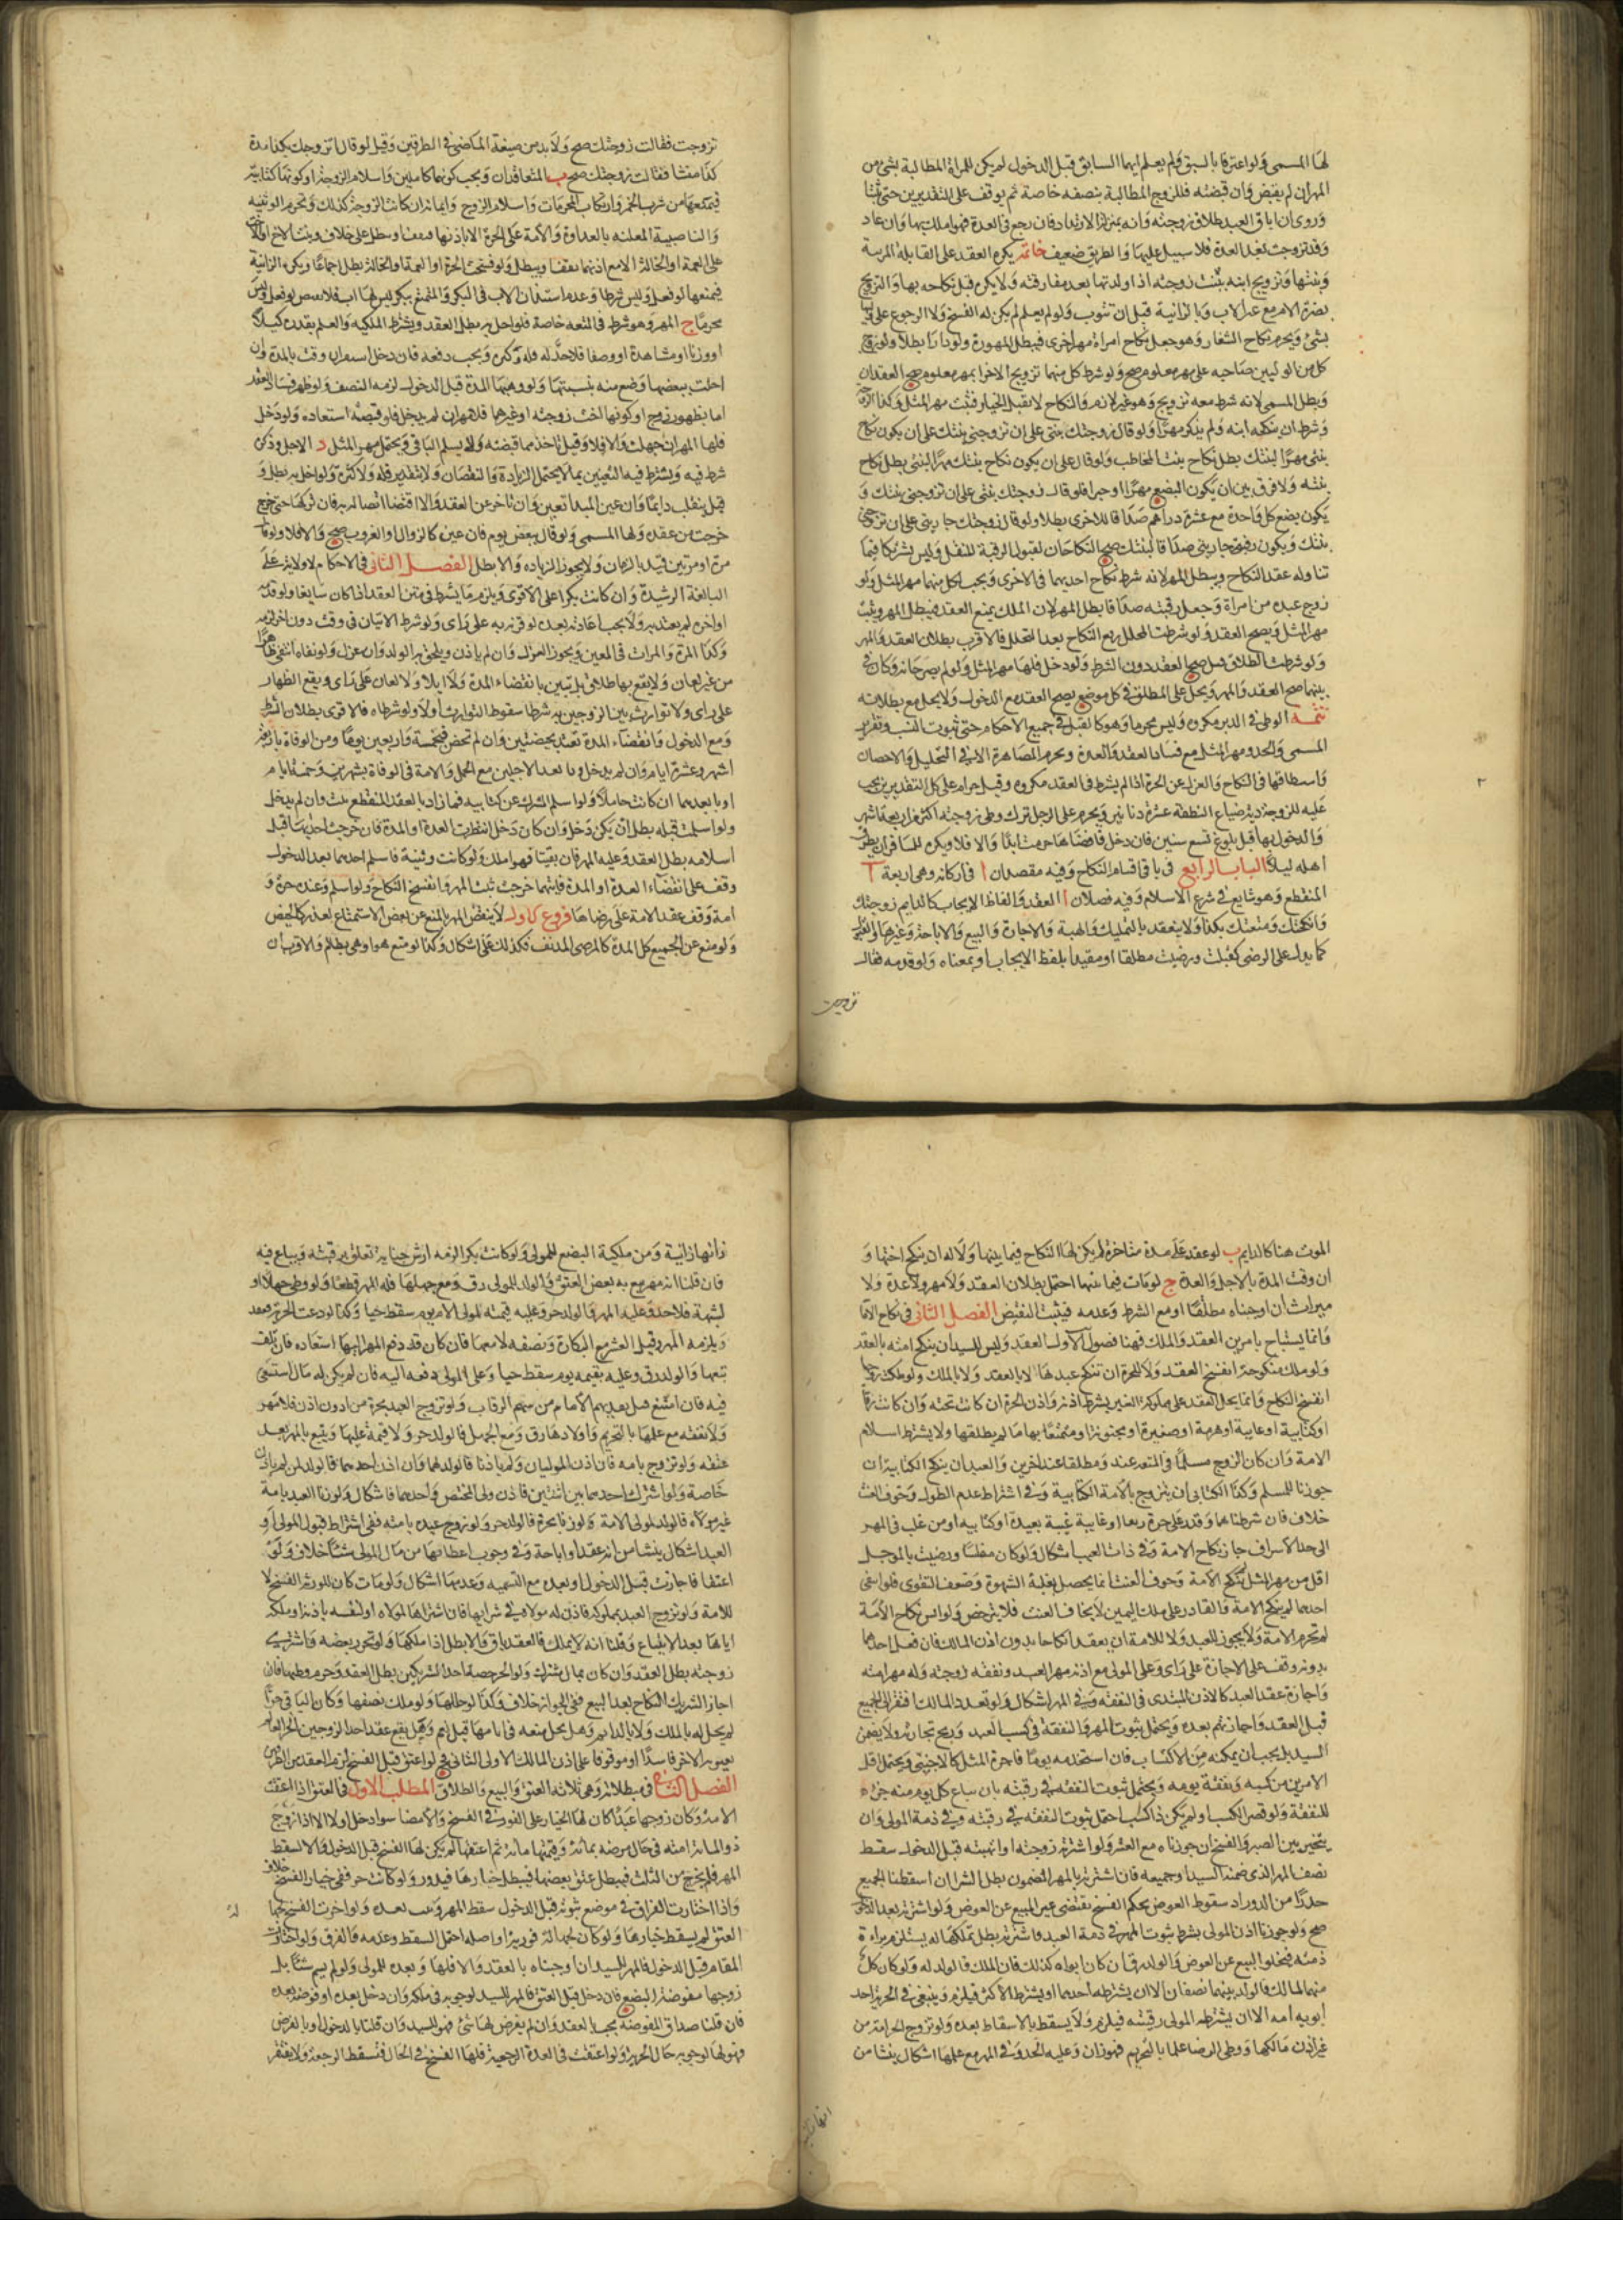 لها المسمى ولو اعترفا بالسبق ولم يعلم ايهما السابق قبل الدخول لم يكن للمراة المطالبة بشئ من
المهر ان لم يقبض وان قبضته فللزوج المطالبة بنصفه خاصة ثم يوقف على التقديرين حتى
وروى ان اباق العبد طلاق زوجته وانه بمنزلة الارتداد فان رجع في العدة فهو املك بها وان عاد
وقد تزوجت بعد العدة فلا سبيل عليها والطريق ضعيف خاتمة يكره العقد على القابلة المربية
وبنتها وتزويج ابنه بنت زوجته اذا ولدتها بعد مفارقته ولا يكره قبل نكاحه بها والتزويج
بضرة الام مع غير الاب وبالزانية قبل ان تتوب ولو لم يعلم لم يكن له الفسخ ولا الرجوع على
بشئ ويحرم نكاح الشغار وهو جعل نكاح امراة مهر اخرى فيبطل الممهورة ولو دارا بطلا ولو زوج
كل من الوليين صاحبه على مهر معلوم صح ولو شرط كل منهما تزويج الاخرى بمهر معلوم صح العقدان
وبطل المسمى لانه شرط معه تزويج وهو غير لازم والنكاح لا يقبل الخيار فثبت مهر المثل وكذا لو زوجه
وشرط ان ينكحه ابنته ولم يذكر مهرا ولو قال زوجتك بنتى على ان تزوجنى بنتك على ان يكون نكاح
بنتى مهرا لبنتك بطل نكاح بنت المخاطب ولو قال على ان يكون نكاح بنتك مهرا لبنتى بطل نكاح
بنته ولا فرق بين ان يكون البضع مهرا او جزا فلو قال زوجتك بنتى على ان تزوجنى بنتك و
يكون بضع كل واحدة مع عشرة دراهم صداقا للاخرى بطلا ولو قال زوجتك جاريتى على ان تزوجنى
بنتك ويكون رقبة جاريتى صداقا لبنتك صح النكاحان لقبول الرقبة للنقل وليس تشريكا فيما
تناوله عقد النكاح ويبطل المهر لانه شرط نكاح احديهما في الاخرى ويجب لكل منهما مهر المثل ولو
زوج عبده من امراة وجعل رقبته صداقا بطل المهر لان الملك يمنع العقد فيبطل المهر ويثبت
مهر المثل ويصح العقد ولو شرطت المحلل رفع النكاح بعد التحلل فالاقرب بطلان العقد والمهر
ولو شرطت الطلاق قيل صح العقد دون الشرط ولو دخل فلها مهر المثل ولو لم يصرحا به وكان في
نيتهما صح العقد والمهر ويحل على المطلق في كل موضع يصح العقد مع الدخول ولا يحل مع بطلانه
تتمة الوطئ في الدبر مكروه وليس محرما وهو كالقبل في جميع الاحكام حتى ثبوت النسب وتقرير
المسمى والحد ومهر المثل مع فساد العقد والعدة وتحريم المصاهرة الا في التحليل والاحصان
واستنطاقها في النكاح والعزل عن الحرة اذا لم يشرط في العقد مكروه وقيل حرام على كل التقديرين يجب
عليه للزوجة دية ضياع النطفة عشرة دنانير ويحرم على الرجل ترك وطئ زوجته اكثر من اربعة اشهر
والدخول بها قبل بلوغ تسع سنين فان دخل فافضاها حرمت ابدا والا فلا ويكره للمسافر ان يطرق
اهله ليلا الباب الرابع في باقي اقسام النكاح وفيه مقصدان ا في اركانه وهي اربعة
المنقطع وهو شايع في شرع الاسلام وفيه فصلان ا العقد والفاظ الايجاب كالدايم زوجتك
وانكحتك ومتعتك بكذا ولا ينعقد بالتمليك والهبة والاجارة والبيع والاباحة وغيرها والقبول
كما يدل على الرضى كقبلت ورضيت مطلقا او مقيدا بلفظ الايجاب او بمعناه ولو قدمه فقال
تزوجت
تزوجت فقالت زوجتك صح ولا بد من صيغة الماضي في الطرفين وقيل لو قال اتزوجك بكذا مدة
كذا منشئا فقالت زوجتك صح ب المتعاقدان ويجب كونهما كاملين واسلام الزوجة او كونها كتابية
فيمنعها من شرب الخمر وارتكاب المحرمات واسلام الزوج وايمانه ان كانت الزوجة كذلك وتحرم الوثنية
والناصبية المعلنة بالعداوة والامة على الحرة الا باذنها فيقف او يبطل على خلاف وبنت الاخ او الاخت
على العمة او الخالة الا مع اذنهما فيقف او يبطل ولو فسخت الحرة او العمة او الخالة بطل اجماعا ويكره الزانية
فيمنعها لو فعل وليس شرطا وعدم استئذان الاب في البكر والتمتع ببكر ليس لها اب فلا يفتض لو فعل وليس
محرما ج المهر وهو شرط في المتعة خاصة فلو اخل به بطل العقد ويشترط الملكية والعلم بقدره كيلا
او وزنا او مشاهدة او وصفا فلا حد له قلة وكثرة ويجب دفعه فان دخل استقر ان وفت بالمدة وان
اخلت ببعضها وضع منه بنسبتها ولو وهبها المدة قبل الدخول لزمه النصف ولو ظهر فساد العقد
اما بظهور زوج او كونها اخت زوجته او غيرهما فلا مهر ان لم يدخل فلو قبضته استعاده ولو دخل
فلها المهر ان جهلت والا فلا وقيل تاخذ مما قبضته ولا يسلم الباقي ويحتمل مهر المثل د الاجل وذكره
شرط فيه ويشترط فيه التعيين بما لا يحتمل الزيادة والنقصان ولا تقدير قلة ولا كثرة ولو اخل به بطل و
قيل ينقلب دايما وان عين المبدا تعين وان تاخر عن العقد والا اقتضا اتصاله به فان تركها حتى خرج
خرجت من عقده ولها المسمى ولو قال بعض يوم فان عين كالزوال او الغروب صح والا فلا ولو قال
مرة او مرتين قيد بالزمان ولا يجوز الزيادة والا بطل الفصل الثاني في الاحكام لا ولاية على
البالغة الرشيدة وان كانت بكرا على الاقوى ويلزم ما يشترط في متن العقد اذا كان سايغا ولو قدمه
او اخره لم يعتد به ولا يجب اعادته بعده لو قرنه به على راى ولو شرط الاتيان في وقت دون اخر لزمه
وكذا المرة والمرات في المعين ويجوز العزل وان لم ياذن ويلحق به الولد وان عزل ولو نفاه انتفى ظاهرا
من غير لعان ولا يقع بها طلاق بل تبين بانقضاء المدة ولا ايلاء ولا لعان على راى ويقع الظهار
على راى ولا توارث بين الزوجين به شرطا سقوط التوارث او لا ولو شرطاه فالاقوى بطلان الشرط
ومع الدخول وانقضاء المدة تعتد بحيضتين وان لم تحض فبخمسة واربعين يوما ومن الوفاة باربعة
اشهر وعشرة ايام وان لم يدخل وبابعد الاجلين مع الحمل والامة في الوفاة بشهرين وخمسة ايام
او بابعدهما ان كانت حاملا ولو اسلم المشرك عن كتابية فما زاد بالعقد المنقطع ثبت وان لم يدخل
ولو اسلمت قبله بطل ان لم يكن دخل وان كان دخل انتظرت العدة او المدة فان خرجت احديهما قبل
اسلامه بطل العقد وعليه المهر فان بقيتا فهو املك ولو كانت وثنية فاسلم احدهما بعد الدخول
وقف على انقضاء العدة او المدة فايتهما خرجت ثبت المهر وانفسخ النكاح ولو اسلم وعنده حرة و
امة وقف عقد الامة على رضاها فروع كاول لا ينقص المهر بالمنع عن بعض الاستمتاع لعذر كالحيض
ولو منع عن الجميع كل المدة كالمرض المدنف فكذلك على اشكال وكذا لو منع هو او هي بظلم والاقرب ان
الموت هنا كالدايم ب لو عقد على مدة متاخرة لم يكن لها النكاح فيما بينهما ولا له ان ينكح اختها و
ان وفت المدة بالاجل والعدة ج لو مات فيما بينهما احتمل بطلان العقد ولا مهر ولا عدة ولا
ميراث ان اوجبناه مطلقا او مع الشرط وعدمه فيثبت النقيض الفصل الثاني في نكاح الاماء
وانما يستباح بامرين العقد والملك فهنا فصول الاول العقد وليس للسيد ان ينكح امته بالعقد
ولو ملك منكوحته انفسخ العقد ولا للحرة ان تنكح عبدها لا بالعقد ولا بالملك ولو ملكت زوجها
انفسخ النكاح وانما يحل العقد على مملوكة الغير بشرط اذنه واذن الحرة ان كانت تحته وان كانت رتقا
او كتابية او غايبة او هرمة او صغيرة او مجنونة او متمتعا بها ما لم يطلقها ولا يشترط اسلام
الامة وان كان الزوج مسلما في المتعة عند ومطلقا عند اخرين وللعبد ان ينكح الكتابية ان
جوزنا للمسلم وكذا الكتابي ان يتزوج بالامة الكتابية وفي اشتراط عدم الطول وخوف العنت
خلاف فان شرطناهما وقدر على حرة رتقا او غايبة غيبة بعيدة او كتابية او من غلت في المهر
الى حد الاسراف جاز نكاح الامة وفي ذات العيب اشكال ولو كان مفلسا ورضيت بالمؤجل
اقل من مهر المثل لم ينكح الامة وخوف العنت انما يحصل بغلبة الشهوة وضعف التقوى فلو انتفى
احدهما لم ينكح الامة فالقادر على ملك اليمين لا يخاف العنت فلا يترخص ولو ايسر بعد نكاح الامة
لم تحرم الامة ولا يجوز للعبد ولا للامة ان يعقدا نكاحا بدون اذن المالك فان فعل احدهما
بدونه وقف على الاجازة على راى وعلى المولى مع اذنه مهر العبد ونفقة زوجته وله مهر امته
واجازة عقد العبد كالاذن المبتدى في النفقة وفي المهر اشكال ولو تعدد المالك افتقر الى الجميع
قبل العقد واجازتهم بعده ويحتمل ثبوت المهر والنفقة في كسب العبد وربح تجارته ولا يضمن
السيد بل يجب ان يمكنه من الاكتساب فان استخدمه يوما فاجرة المثل كالاجنبي ويحتمل اقل
الامرين من كسبه ونفقة يومه ويحتمل ثبوت النفقة في رقبته بان يباع كل يوم منه جزء
للنفقة ولو قصر الكسب او لم يكن ذا كسب احتمل ثبوت النفقة في رقبته وفي ذمة المولى وان
يتخير بين الصبر والفسخ ان جوزناه مع العسر ولو اشترته زوجته او اتهبته قبل الدخول سقط
نصف المهر الذي ضمنه السيد او جميعه فان اشترته بالمهر المضمون بطل الشراء ان اسقطنا الجميع
حذرا من الدور اذ سقوط العوض بحكم الفسخ يقتضى عرى المبيع عن العوض ولو اشترته بعد الدخول
صح ولو جوزنا اذن المولى بشرط ثبوت المهر في ذمة العبد فاشترته بطل تملكها له يستلزم براءة
ذمته فيخلو البيع عن العوض والولد رق ان كان ابواه كذلك فان الملك فالولد له ولو كان كل
منهما لمالك فالولد بينهما نصفان الا ان يشترطه احدهما او يشترط الاكثر فيلزم وينبغى في الحرية احد
ابويه امه الا ان يشترط المولى رقيته فيلزم ولا يسقط بالاسقاط بعده ولو تزوج الحر امة من
غير اذن مالكها ووطئ قبل الرضا عالما بالتحريم فهو زان وعليه الحد وفي المهر مع علمها اشكال ينشا من
انها زانية
انها زانية ومن ملكية البضع للمولى ولو كانت بكرا لزمه ارش جناية تعلق برقبته ويباع فيه
فان قلنا انه مهر تبع به بعض العتق والولد للمولى رق ومع جهلها فله المهر قطعا ولو وطئ جهلا او
لشبهة فلا حد وعليه المهر والولد حر وعليه قيمته لمولى الامة يوم سقط حيا وكذا لو ادعت الحرية فعقد
ويلزمه المهر وقيل العشر مع البكارة ونصفه لا معها فان كان قد دفع المهر اليها استعاده فان تلف
تبعها والولد رق وعليه بقيمته يوم سقط حيا وعلى المولى دفعه اليه فان لم يكن له مال استسعى
فيه فان امتنع قيل يفديهم الامام من سهم الرقاب ولو تزوج العبد بحرة من دون اذن فلا مهر
ولا نفقة مع علمها بالتحريم واولادها رق ومع الجهل فالولد حر ولا قيمة عليها ويتبع بالمهر بعد
عتقه ولو تزوج بامة فان اذن الموليان او لم ياذنا فالولد لهما وان اذن احدهما فالولد لمن لم ياذن
خاصة ولو اشترك احدهما بين اثنين فاذن ولى المختص واحدهما فاشكال ولو زنا العبد بامة
غير مولاه فالولد لمولى الامة ولو زنا بحرة فالولد حر ولو زوج عبده بامته ففي اشتراط قبول المولى او
العبد اشكال ينشا من انه عقد او اباحة وفي وجوب اعطائها من مال المولى شيئا خلاف ولو
اعتقا فاجازت قبل الدخول او بعده مع التسمية وعدمها اشكال ولو مات كان للورثة الفسخ لا
للامة ولو تزوج العبد بمملوكة فاذن له مولاه في شرايها فان اشتراها لمولاه او لنفسه باذنه او ملكه
اياها بعد الابتياع وقلنا انه لا يملك فالعقد باق والا بطل اذا ملكها ولو تحرر بعضه واشترى
زوجته بطل العقد وان كان بمال مشترك ولو الحر حصة احد الشريكين بطل العقد وحرم وطيها فان
اجاز الشريك النكاح بعد البيع ففي الجواز خلاف وكذا لو حللها ولو ملك نصفها وكان الباقي حرا
لم يحل له بالملك ولا بالدايم وهل يحل متعة في ايامها قيل نعم وهل يقع عقد احد الزوجين الحر العالم
بعبودية الاخر فاسدا او موقوفا على اذن المالك الاولى الثاني فلو اعتق قبل الفسخ لزم العقد من الطرفين
الفصل الثاني في مبطلاته وهي ثلاثة العتق والبيع والطلاق المطلب الاول في العتق اذا اعتقت
الامة وكان زوجها عبدا كان لها الخيار على الفور في الفسخ والامضا سوا دخل او لا الا اذا زوج
ذو المائة امته في حال مرضه بمائة وقيمتها مائة ثم اعتقها لم يكن لها الفسخ قبل الدخول والا لسقط
المهر فلم يخرج من الثلث فيبطل عتق بعضها فيبطل خيارها فيدور ولو كانت حر ففي خيار الفسخ خلاف
واذا اختارت الفراق في موضع ثبوته قبل الدخول سقط المهر وثبت بعده ولو اخرت الفسخ لجهل
العتق لم يسقط خيارها ولو كان لجهالة فوريته او اصله احتمل السقط وعدمه والفرق ولو اختارت
المقام قبل الدخول فالمهر للسيد ان اوجبناه بالعقد والا فلها وبعده للمولى ولو لم يسم شيئا بل
زوجها مفوضة البضع فان دخل قبل العتق فالمهر للسيد لوجوبه في ملكه وان دخل بعده او فرضه بعده
فان قلنا صداق المفوضة يجب بالعقد وان لم يفرض لها شئ فهو للسيد وان قلنا بالدخول او بالفرض
فهو لها لوجوبه حال الحرية ولو اعتقت في العدة الرجعية فلها الفسخ في الحال فتسقط الرجعة ولا يفتقر